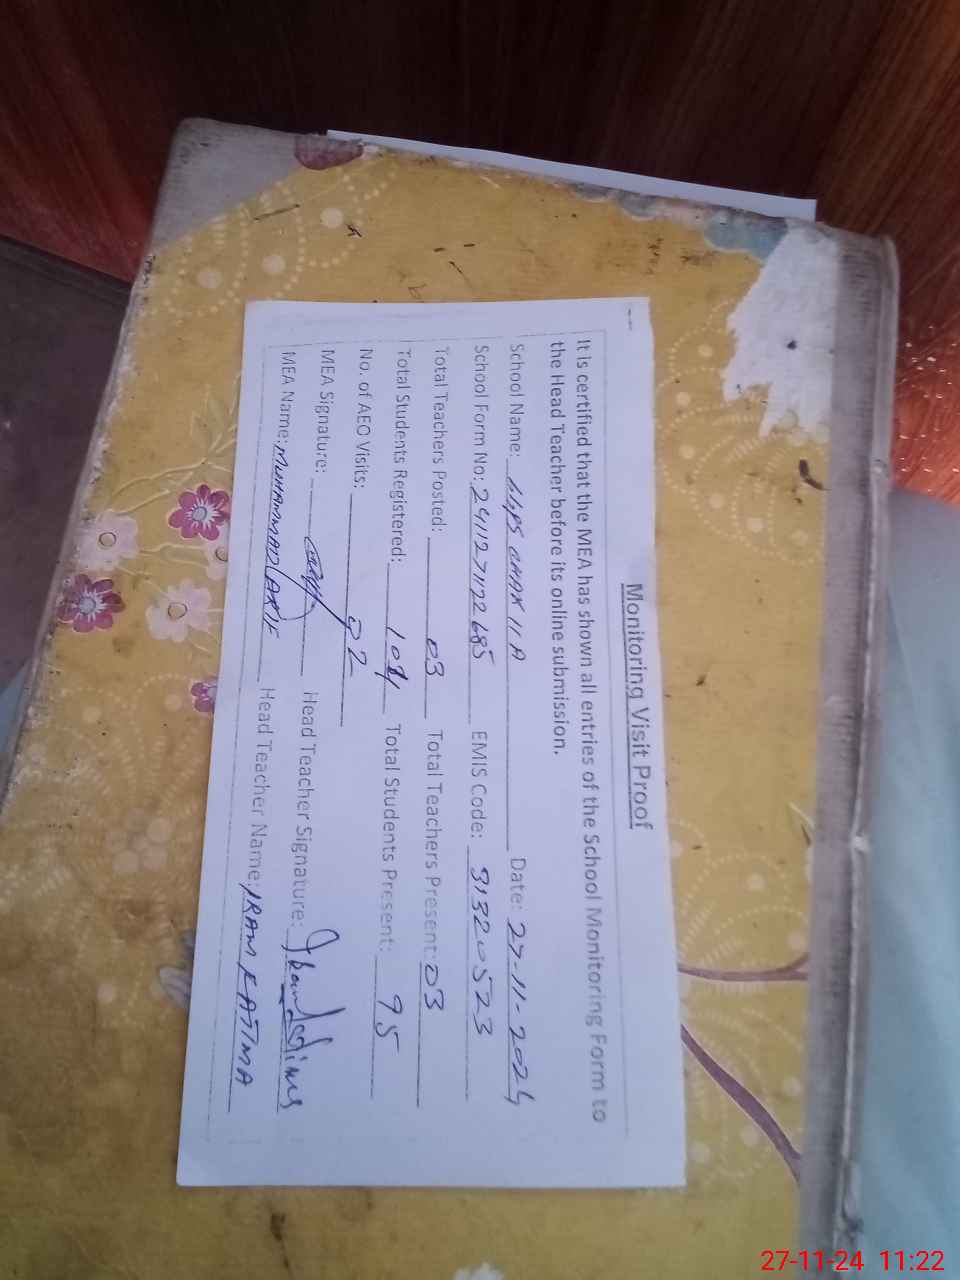 Monitoring Visit Proof
It is certified that the MEA has shown all entries of the School Monitoring Form to
the Head Teacher before its online submission.
School Name: CHAK 11 A Date: 27-11-2024
School Form No: 24112711122685 EMIS Code: 31320523
Total Teachers Posted: 03 Total Teachers Present: 03
Total Students Registered: 104 Total Students Present: 95
No. of AEO Visits: 02
MEA Signature: Head Teacher Signature:
MEA Name: MUHAMMAD ARIF Head Teacher Name: IRAM FATIMA
27-11-24 11:22